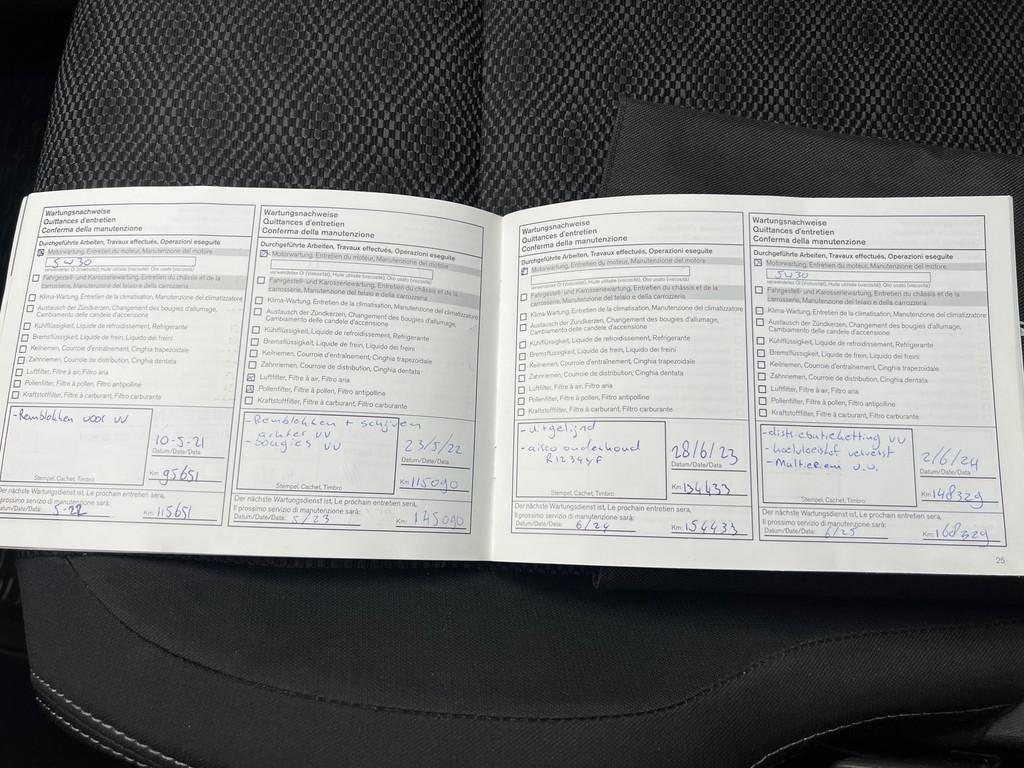 Wartungsnachweise
Quittances d'entretien
Conferma della manutenzione
Durchgeführte Arbeiten, Travaux effectués, Operazioni eseguite
Motorwartung, Entretien du moteur, Manutenzione del motore
5W30
verwendetes Öl (Viskosität), Huile utilisée (viscosité), Olio usato (viscosità)
Fahrgestell- und Karosseriewartung, Entretien du châssis et de la
carrosserie, Manutenzione del telaio e della carrozzeria
Klima-Wartung, Entretien de la climatisation, Manutenzione del climatizzatore
Austausch der Zündkerzen, Changement des bougies d'allumage,
Cambiamento delle candele d'accensione
Kühlflüssigkeit, Liquide de refroidissement, Refrigerante
Bremsflüssigkeit, Liquide de frein, Liquido dei freni
Keilriemen, Courroie d'entraînement, Cinghia trapezoidale
Zahnriemen, Courroie de distribution, Cinghia dentata
Luftfilter, Filtre à air, Filtro aria
Pollenfilter, Filtre à pollen, Filtro antipolline
Kraftstofffilter, Filtre à carburant, Filtro carburante
-Remblokken voor VV
10-5-21
Datum/Date/Data
Km 95651
Stempel, Cachet, Timbro
Der nächste Wartungsdienst ist, Le prochain entretien sera,
Il prossimo servizio di manutenzione sarà:
Datum/Date/Data: 5-22 Km: 115651
Wartungsnachweise
Quittances d'entretien
Conferma della manutenzione
Durchgeführte Arbeiten, Travaux effectués, Operazioni eseguite
Motorwartung, Entretien du moteur, Manutenzione del motore
verwendetes Öl (Viskosität), Huile utilisée (viscosité), Olio usato (viscosità)
Fahrgestell- und Karosseriewartung, Entretien du châssis et de la
carrosserie, Manutenzione del telaio e della carrozzeria
Klima-Wartung, Entretien de la climatisation, Manutenzione del climatizzatore
Austausch der Zündkerzen, Changement des bougies d'allumage,
Cambiamento delle candele d'accensione
Kühlflüssigkeit, Liquide de refroidissement, Refrigerante
Bremsflüssigkeit, Liquide de frein, Liquido dei freni
Keilriemen, Courroie d'entraînement, Cinghia trapezoidale
Zahnriemen, Courroie de distribution, Cinghia dentata
Luftfilter, Filtre à air, Filtro aria
Pollenfilter, Filtre à pollen, Filtro antipolline
Kraftstofffilter, Filtre à carburant, Filtro carburante
-Remblokken + schijven
achter VV
-bougies VV
23/5/22
Datum/Date/Data
Km 115090
Stempel, Cachet, Timbro
Der nächste Wartungsdienst ist, Le prochain entretien sera,
Il prossimo servizio di manutenzione sarà:
Datum/Date/Data: 5/23 Km: 145090
Wartungsnachweise
Quittances d'entretien
Conferma della manutenzione
Durchgeführte Arbeiten, Travaux effectués, Operazioni eseguite
Motorwartung, Entretien du moteur, Manutenzione del motore
verwendetes Öl (Viskosität), Huile utilisée (viscosité), Olio usato (viscosità)
Fahrgestell- und Karosseriewartung, Entretien du châssis et de la
carrosserie, Manutenzione del telaio e della carrozzeria
Klima-Wartung, Entretien de la climatisation, Manutenzione del climatizzatore
Austausch der Zündkerzen, Changement des bougies d'allumage,
Cambiamento delle candele d'accensione
Kühlflüssigkeit, Liquide de refroidissement, Refrigerante
Bremsflüssigkeit, Liquide de frein, Liquido dei freni
Keilriemen, Courroie d'entraînement, Cinghia trapezoidale
Zahnriemen, Courroie de distribution, Cinghia dentata
Luftfilter, Filtre à air, Filtro aria
Pollenfilter, Filtre à pollen, Filtro antipolline
Kraftstofffilter, Filtre à carburant, Filtro carburante
-uitgelijnd
-airco onderhoud
R1234yf
28/6/23
Datum/Date/Data
Km 134433
Stempel, Cachet, Timbro
Der nächste Wartungsdienst ist, Le prochain entretien sera,
Il prossimo servizio di manutenzione sarà:
Datum/Date/Data: 6/24 Km: 154433
Wartungsnachweise
Quittances d'entretien
Conferma della manutenzione
Durchgeführte Arbeiten, Travaux effectués, Operazioni eseguite
Motorwartung, Entretien du moteur, Manutenzione del motore
5W30
verwendetes Öl (Viskosität), Huile utilisée (viscosité), Olio usato (viscosità)
Fahrgestell- und Karosseriewartung, Entretien du châssis et de la
carrosserie, Manutenzione del telaio e della carrozzeria
Klima-Wartung, Entretien de la climatisation, Manutenzione del climatizzatore
Austausch der Zündkerzen, Changement des bougies d'allumage,
Cambiamento delle candele d'accensione
Kühlflüssigkeit, Liquide de refroidissement, Refrigerante
Bremsflüssigkeit, Liquide de frein, Liquido dei freni
Keilriemen, Courroie d'entraînement, Cinghia trapezoidale
Zahnriemen, Courroie de distribution, Cinghia dentata
Luftfilter, Filtre à air, Filtro aria
Pollenfilter, Filtre à pollen, Filtro antipolline
Kraftstofffilter, Filtre à carburant, Filtro carburante
-distributieketting VV
-koelvloeistof ververst
-Multiriem v.v.
2/6/24
Datum/Date/Data
Km 148329
Stempel, Cachet, Timbro
Der nächste Wartungsdienst ist, Le prochain entretien sera,
Il prossimo servizio di manutenzione sarà:
Datum/Date/Data: 6/25 Km: 168329
25